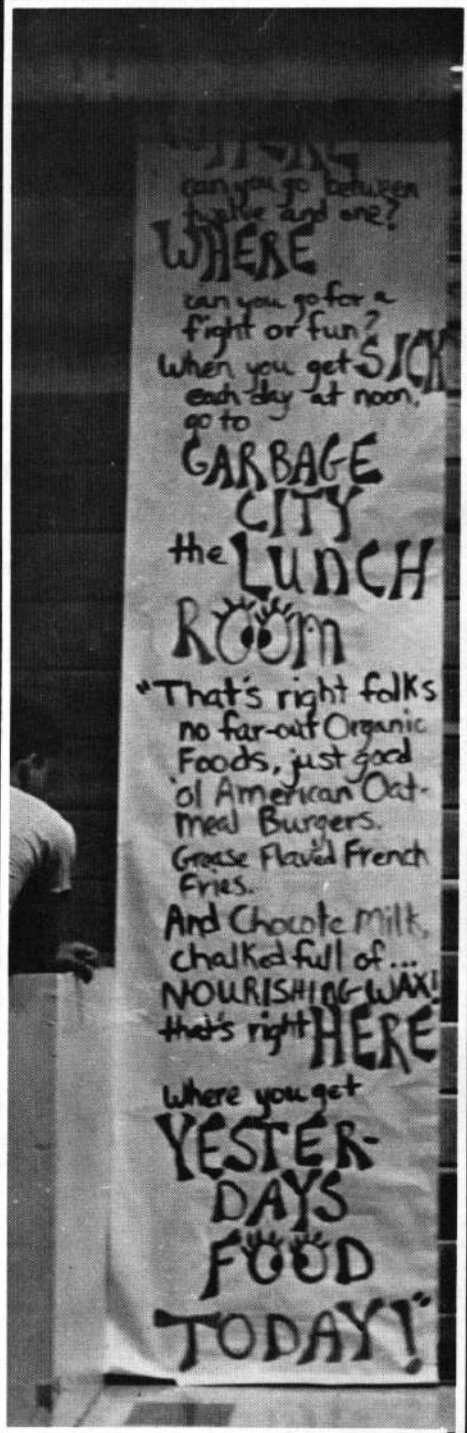 WHERE
can you go between
twelve and one?
WHERE
can you go for a
fight or fun?
When you get SICK
each day at noon,
go to
GARBAGE
CITY
the LUNCH
ROOM
"That's right folks
no far-out Organic
Foods, just good
'ol American Oat-
meal Burgers.
Grease Flav'd French
Fries.
And Chocote Milk,
chalked full of...
NOURISHING WAX!
that's right HERE
where you get
YESTER-
DAYS
FOOD
TODAY!"